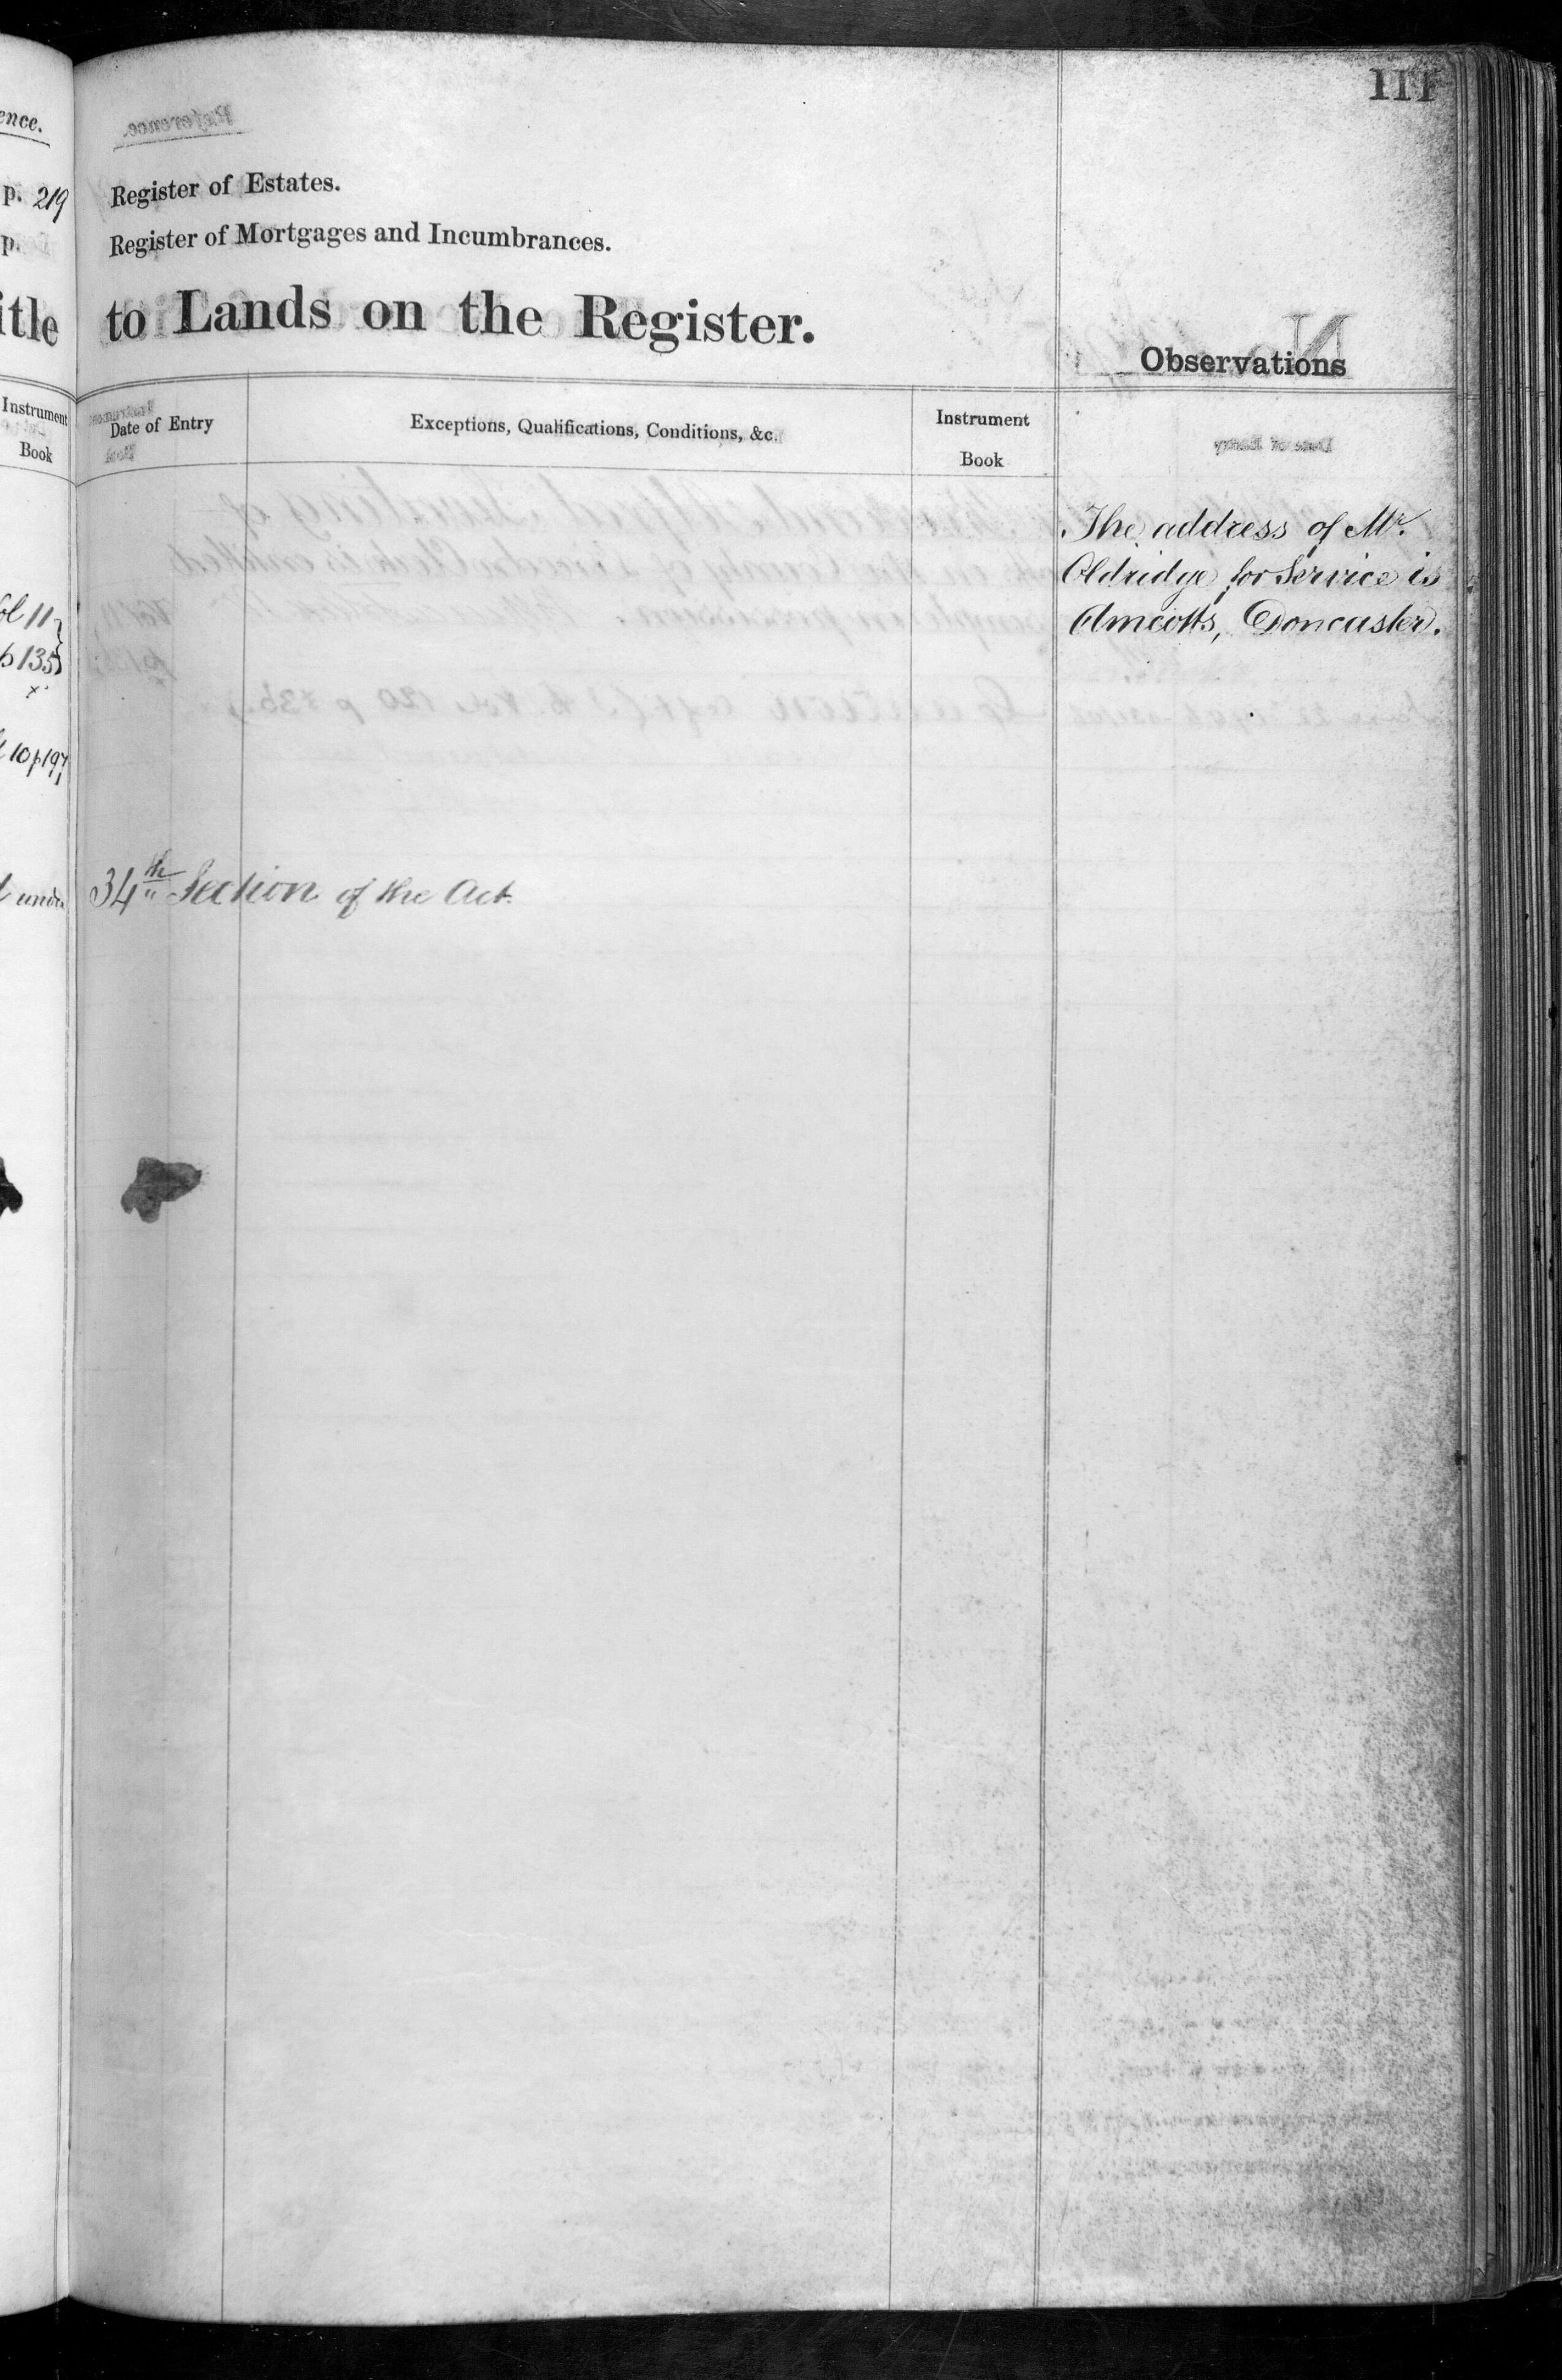 111
ence.
p. 219
p.
itle
Instrument
Book
Vol 11
p 135
10 p 197
under
Register of Estates.
Register of Mortgages and Incumbrances.
to Lands on the Register.
Observations
Date of Entry
Exceptions, Qualifications, Conditions, &c.
Instrument
Book
The address of Mr.
Oldridge for Service is
Amcotts, Doncaster.
34th Section of the Act.